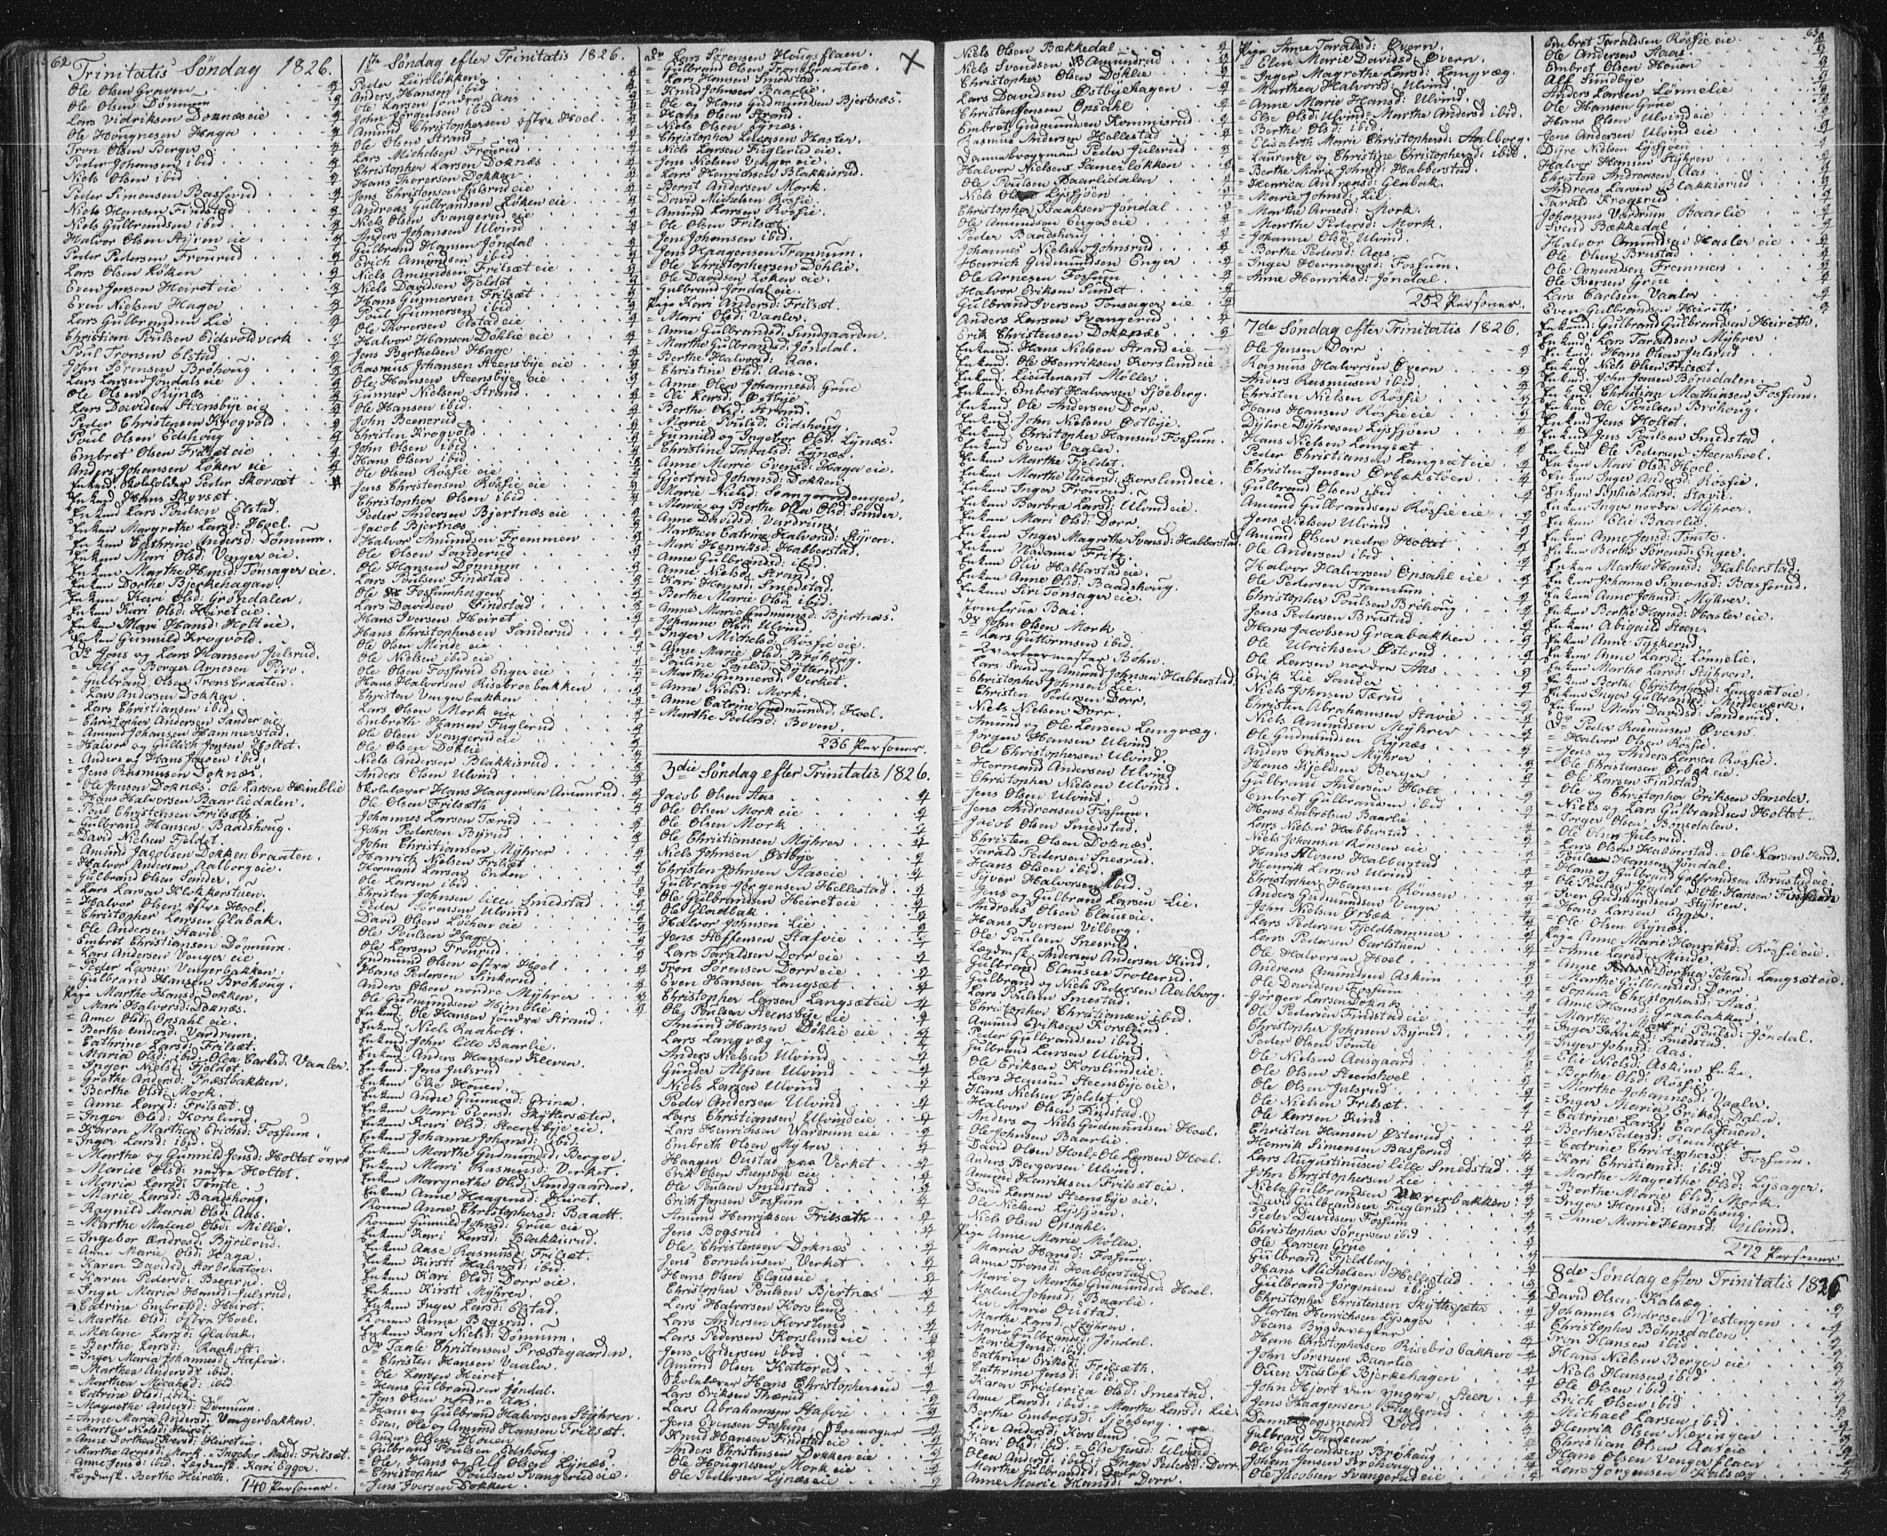 62
Trinitatis Søndag 1826.
Ole Olsen Graven
Ole Olsen Dømum
Lars Vidriksen Doknæs eie
Ole Hougnesen Haga
Tron Olsen Berger
Peder Johansen ibid
Niels Olsen ibid
Peder Simensen Basserud
Niels Hansen Findstad
Niels Gulbrandsen ibid
Halvor Olsen Styren eie
Peder Pedersen Frourud
Lars Olsen Løken
Even Jensen Heiret eie
Even Nielsen Haga
Lars Gulbrandsen Lie
Christian Poulsen Eidsvold værk
Poul Tronsen Elstad
John Sørensen Brøhoug
Lars Larsen Jøndals eie
Ole Olsen Rynæs
Lars Davidsen Steensbye eie
Peder Christensen Krogvold
Poul Olsen Edshoug
Embret Olsen Frilset eie
Anders Johansen Løken eie
Enkmd Skoleholder Peder Skorsæt
Enkmd Hans Skorsæt
Enkmd Lars Poulsen Elstad
Enken Margrethe Larsd: Hoel
Enken Cathrine Andersd: Dømum
Enken Mari Olsd: Venger eie
Enken Marthe Hansd: Tønsager eie
Enken Dorthe Bjerkehagen
Enken Kari Olsd: Grøndalen
Enken Kari Olsd: Heiret eie
Enken Mari Hansd: Holt eie
Enken Gunnild Krogvold
Dr Jens og Lars Hansen Julsrud
= Alf og Borger Arnesen Piro
= Gulbrand Olsen Tronsbraaten
= Lars Andersen Dokken
= Lars Christiansen ibid
= Christopher Andersen Sander eie
= Amund Johansen Hammerstad
= Halvor og Gullich Jensen Holtet
= Anders og Hans Jensen ibid
= Jens Rasmusen Doknæs
= Ole Jensen Doknæs - Ole Larsen Hæmblie
= Hans Halvorsen Baarliedalen
= Poul Christensen Frilsæth
= Gulbrand Hansen Baadshoug
= David Nielsen Fjeldet
= Amund Jacobsen Dokkenbraaten
= Halvor Andersen Aalborg eie
= Gulbrand Olsen Sander
= Lars Larsen Klokkerstuen
= Halvor Olsen østre Hoel
= Christopher Larsen Glabak
= Ole Andersen Stavie
= Embret Christiansen Dømum
= Lars Andersen Venger eie
= Peder Larsen Vengerbakken
= Gulbrand Hansen Brøhoug
Pige Marthe Hansd: Dokken
= Mari Halvorsd: Doknæs
= Anne Olsd: Opsahl eie
= Berthe Andersd: Vardrum
= Cathrine Larsd: Frilsæt
= Maria Olsd: ibid, Olea Carlsd: Vaaler
= Inger Nielsd: Fjeldet
= Grethe Andersd: Præstbakken
= Berthe Olsd: Mork
= Anne Larsd: Frilsæt
= Inger Olsd: Korslund
= Karen Marthea Erichsd: Fossum
= Inger Larsd: ibid
= Marthe og Gunnild Jensd: Holtet øvre
= Marie Olsd: nedre Holtet
= Maria Larsd: Tømte
= Marie Larsd: Baadshoug
= Ragnild Maria Olsd: Aas
= Marthe Malene Olsd: Mille
= Ingebor Andresd: Byrilrud
= Anne Marie Olsd: Haga
= Karen Davidsd: Korbraaten
= Karen Pedersd: Beenrud
= Inger Maria Hansd: Julsrud
= Catrine Embretsd: Heiret
= Marthe Olsd: østre Hoel
= Malene Larsd: Glabak
= Berthe Larsd: Raaholt
= Inger Maria Johannesd: Stafvie
= Marthea Andersd: ibid
= Marthea Micahsd: ibid
= Catrine Olsd: ibid
= Magnethe Andersd: Dømum
= Anne Maria Andersd: Vengerbakken
= Marthe Nielsd: Heiret
= Anne Dorthea Iversd: Heiret eie
= Anne Jensd: ibid. Lægdemsk: Kari Egger
Lægdemsk: Berthe Heireth
140 Personer.
1ste Søndag efter Trinitatis 1826.
Peder Leirløkken
Anders Hansen ibid
Ole Larsen søndre Aas
John Jørgensen ibid
Amund Christophersen østre Hoel
Ole Olsen Strand
Lars Michelsen Frourud
Christopher Larsen Doknæs
Hans Thoresen Dokken
Jens Christensen Julsrud eie
Andreas Gulbrandsen Løken eie
Niels Olsen Svangerud eie
Anders Johansen Ulvind
Gulbrand Hansen Jøndal
Erich Amundsen ibid
Niels Amundsen Frilsæt eie
Niels Davidsen Fjeldet
Hans Gunnersen Frilsæt
Poul Gunnersen ibid
Ole Thoresen Elstad eie
Halvor Hansen Døhlie eie
Jens Berthelsen Hage
Rasmus Johansen Steensbye eie
Ole Hansen Steensbye eie
Gunner Nielsen Strand
Ole Hansen ibid
John Beenerud
Christen Krogvold
John Olsen ibid
Hans Olsen ibid
Ole Olsen Røsfie eie
Jens Christensen Røsfie eie
Christopher Olsen ibid
Peder Andersen Bjertnæs eie
Jacob Bjertnæs
Halvor Amundsen Fremmen
Ole Olsen Sonderud
Ole Hansen Dømum
Lars Poulsen Findstad
Ole Fossumhagen
Lars Davidsen Findstad
Hans Iversen Heiret
Hans Christophersen Sanderud
Ole Olsen Minde eie
Ole Nielsen ibid eie
Ole Olsen Fosserud Enger eie
Hans Halvorsen Risebroebakken
Christen Vengerbakken
Lars Olsen Mork eie
Embreth Hansen Fuglerud
Ole Olsen Svangerud eie
Ole Olsen Døhlie
Niels Andersen Blakkisrud
Anders Olsen Ulvind
Skolelærer Hans Haagensen Amundrud
Ole Olsen Frilsæth
Johannes Larsen Tærud
John Pedersen Byrud
John Christiansen Myhrer
Henrich Nielsen Frilsæt
Hermand Larsen Enken
Ole Larsen ibid
Christen Johnsen lille Smedstad
Peder Sørensen Ulvind
David Olsen Løkhar eie
Ole Poulsen Hage
Ole Larsen Frourud
Gudmund Olsen østre Hoel
Hans Pedersen Sikerud
Anders Olsen nordre Myhrer
Ole Gudmundsen Himblie
Enkmd Ole Hansen søndre Strand
Enkmd Niels Raaholt
Enkmd John lille Baarlie
Enkmd Anders Hansen Kleven
Enkmd Jens Julsrud
Enken Else Houen
Enken Anne Gunnersd: Grina
Enken Mari Evensd: Skyttesæter
Enken Kari Olsd: Steensbye eie
Enken Johanne Johansd: ibid
Enken Marthe Gudmundsd: Berger
Enken Mari Rasmusd: Verket
Enken Margrethe Olsd: Sundgaarden
Enken Anne Haagensd: Heiret
Konen Anne Christophersd: Baadt
Konen Gunnild Johnsd: Grue eie
Enken Kari Larsd: Blakkisrud
Enken Aase Rasmusd: Frilsæt
Enken Kirsti Halvorsd: ibid
Enken Kari Olsd: Dorr eie
Enken Kirsti Myhrer
Enken Inger Larsd: Elstad
Konen Anne Bogsrud
Enken Kari Nielsd: Dømum
Dr Taale Christensen Præstegaarden
= Christen Hansen Vaaler
= Ole Larsen Heiret
= Hans Gulbrandsen Jøndal
= Jens Olsen nordre Aas
= Hans og Gulbrand Halvorsen Styhren
= Even, Ole og Amund Hansen Frilsæt
= Anders Olsen Houer
= Gulbrand Poulsen Edshoug
= Ole, Hans og Alf Olsen Lynæs
= Christopher Poulsen Svangerud eie
= Jens Iversen Dokken
Dr Lars Sørensen Hougsflaen
= Gulbrand Olsen Tronsbraaten
= Lars Hansen Smedstad
= Knud Johnsen Baarlie
= Ole og Hans Gudmundsen Bjertnæs
= Hans Olsen Strand
= Niels Olsen Lynæs
= Christopher Larsen Hasler
= Niels Larsen Fuglerud eie
= Jens Nielsen Venger eie
= Lars Henrichsen Blakkisrud
= Bernt Andersen Mork
= David Michelsen Røsfie
= Amund Larsen Røsfie
= Ole Olsen Frilsæt
= Jens Johansen ibid
= Jens Haagensen Trannum
= Ole Christophersen Døhlie
= Ole Davidsen Løken eie
= Gulbrand Jøndal eie
Pige Kari Andersd: Frilsæt
= Mari Olsd: Vaaler
= Anne Gulbrandsd: Sundgaarden
= Marthe Gulbrandsd: Jøndal
= Berthe Halvorsd: Aas
= Christine Olsd: Aas
= Anne Olea Johannesd: Grue
= Eli Larsd: Østbye
= Berthe Olsd: Strand
= Marie Poulsd: Eidshoug
= Gunnild og Ingebor Olsd: Lynæs
= Christine Taralsd: Lynæs
= Anne Marie Evensd: Haga eie
= Gjertrud Johansd: Dokken
= Marie Nielsd: Svangerudengen
= Marie og Berthe Olea Olsd: Sander
= Anne Davidsd: Vardrum
= Marthea Catrine Halvorsd: Styren
= Mari Henriksd: Habberstad
= Anne Gulbrandsd: ibid
= Anne Nielsd: Strand
= Kari Hansd: Smedstad
= Berthe Marie Olsd: ibid
= Anne Marie Gudmundsd: Bjertnæs
= Johanne Olsd: Ulvind
= Inger Michelsd: Røsfie eie
= Anne Marie Olsd: Brøhoug
= Pauline Poulsd: Dytteren
= Marthe Gunnersd: Verket
= Anne Nielsd: Mork
= Anne Catrine Gudmundsd: Hoel
= Marthe Pedersd: Boven
236 Personer.
3die Søndag efter Trinitatis 1826.
Jacob Olsen Aas
Ole Olsen Mork eie
Ole Olsen Mork
Ole Christiansen Myhrer
Niels Johnsen Østbye
Christen Johnsen Aas eie
Gulbrand Jørgensen Hellestad
Ole Gulbrandsen Heiret eie
Ole Gladbak
Halvor Johnsen Lie
Jens Steffensen Stafvie
Lars Taraldsen Dorr eie
Tron Sørensen Dorr eie
Even Hansen Langsæt
Christopher Larsen Langsæt eie
Ole Poulsen Steensbye eie
Amund Hansen Døhlie eie
Lars Langvæg
Anders Nielsen Ulvind
Gunder Alfsen Ulvind
Niels Larsen Ulvind
Peder Andersen Ulvind
Lars Christiansen Ulvind eie
Lars Henrichsen Vardrum eie
Embreth Olsen Myhrer
Haagen Oustad Verket
Erik Olsen Steensbye eie
Ole Poulsen Smedstad
Erich Jensen Fossum
Amund Henriksen Frilsæth
Jens Bogsrud
Ole Christensen Doknæs
Jens Corneliusen Verket
Hans Olsen Clauseie
Christopher Poulsen Bjertnæs
Lars Halvorsen Korslund
Lars Andersen Korslund
Lars Pedersen Korslund eie
Jens Andersen ibid
Amund Olsen Katterud
Skolelærer Hans Christophersen
Lars Eriksen Thærud
Lars Abrahamsen Stafvie
Jens Evensen Fossum
Knud Hansen Findstad eie
Anders Christensen Dokken eie
Ole Hougnesen Mork eie
Ole Pedersen Lynæs eie
Niels Olsen Bækkedal
Niels Svendsen Amundrud
Christopher Olsen Døhlie
Lars Davidsen Østbyehagen
Christen Jensen Opsahl
Embret Gudmundsen Kommisrud
Rasmus Andersen Hellestad
Dannebrogsman Peder Julsrud
Halvor Nielsen Sameløkken
Ole Poulsen Baarliedalen
Niels Olsen Lysjøen
Christopher Isaaksen Jøndal
Ole Amundsen Enger eie
Peder Baadshoug
Johannes Nielsen Johnsrud
Henrich Gudmundsen Enger
Ole Arnesen Fossum
Halvor Eriksen Sundet
Gulbrand Iversen Tønsager eie
Anders Larsen Svangerud
Erik Christensen Doknæs
Enkmd: Hans Nielsen Strand eie
Enkmd: Ole Henriksen Korslund eie
Enkmd: Lieutenant Møller
Enkmd: Embret Halvorsen Sjøeberg
Enkmd: Ole Andersen Dorr
Enkmd: John Nielsen Østbye
Enkmd: Christopher Hansen Fossum
Enkmd Even Vagler
Enken Marthe Fjeldet
Enken Marthe Andersd: Korslund eie
Enken Inger Frourud
Enken Barbra Larsd: Ulvind eie
Enken Mari Olsd: Dorr
Enken Inger Magrethe Svensd: Halberstad
Enken Madame Fritz
Enken Olia Habberstad eie
Enken Anne Olsd: Baadshoug
Enken Siri Tønsager eie
Jomfrue Bai
Dr John Olsen Mork
= Lars Guttormsen ibid
= Qvartermester Bøhn
= Lars Svend og Amund Johnsen Habberstad
= Christopher Johnsen Lie
= Christen Pedersen Dorr
= Niels Nielsen Dorr
= Amund og Ole Larsen Langvæg
= Jørgen Hansen Ulvind
= Ole Christophersen Ulvind
= Hermand Andersen Ulvind
= Christopher Nielsen Ulvind
= Jens Olsen Ulvind
= Jens Andreasen Fossum
= Jacob Olsen Smedstad
= Christen Olsen Doknæs
= Tarald Pedersen Snesrud
= Hans Olsen ibid
= Syver Halvorsen ibid
= Jens og Gulbrand Larsen Lie
= Andreas Olsen Clauseie
= Hans Iversen Vilberg
= Ole Poulsen Snesrud
= Lægdmsk: Andersen Andersen Kind
= Gulbrand Clausen Trollerud
= Gulbrand og Niels Pedersen Aalborg
= Lars Poulsen Smestad
= Christopher Christiansen ibid
= Amund Eriksen Korslund
= Peder Gulbrandsen ibid
= Gulbrand Larsen Ulvind
= Ole Eriksen Korslund eie
= Lars Hansen Steensbye eie
= Hans Nielsen Fjeldet
= Halvor Olsen Findstad
= Anders og Niels Gudmundsen Hoel
= Ole Johnsen Baarlie
= David Olsen Hoel, Ole Larsen Hoel
= Anders Bergersen Ulvind
= Amund Henriksen Frilsæt eie
= David Larsen Steensbye eie
= Ole Nielsen Lysjøen
= Niels Olsen Opsahl
Pige Anne Marie Mølle
= Maria Hansd: Fossum
= Anne Tronsd: Habberstad
= Mari og Marthe Gudmundsd: Hoel
= Malene Johnsd: Baarlie
= Live Marie Oustad
= Marthe Larsd: Styhren
= Marie Gulbrandsd: Jøndal
= Marie Jensd: ibid
= Cathrine Eriksd: Frilsæth
= Cathrine Jensd: ibid
= Karen Friderica Olsd: Smestad
= Anne Larsd: ibid - Marthe Larsd: Lie
= Berthe Embretsd: Sjoeberg
= Live Andersd: Korslund
= Kari Olsd: ibid = Else Jensd: Ulvind
= Olea Andersd: ibid = Inger Pedersd: Dorr
= Marthe Gulbrandsd: Dorr
= Anne Marie Hansd: Dorr
Pige Anne Taralsd: Øvern
= Elen Marie Davidsd: Øvern
= Inger Magrethe Larsd: Langvæg
= Marthea Halvorsd: Ulvind
= Anne Marie Hansd: Ulvind
= Else Olsd: Ulvind = Marthe Andersd: ibid
= Berthe Olsd: ibid
= Elisabeth Marie Christophersd: Aalborg
= Laurentze og Christine Christophersd: ibid
= Berthe Marie Johnsd: Habberstad
= Henrica Andreasd: Glabak
= Marie Johnsd: Lie
= Marthe Arnesd: Mork
= Marthe Pedersd: Mork
= Johanne Olsd: Ulvind
= Berthe Pedersd: Aas
= Inger Hermansd: Fossum
= Anne Henriksd: Jøndal
252 Personer.
7de Søndag efter Trinitatis 1826.
Ole Jensen Dorr
Rasmus Halvorsen Øvern
Anders Rasmusen ibid
Christen Nielsen Røsfie
Hans Hansen Røsfie eie
Dyhre Dyhresen Lysjøen
Hans Nielsen Langsæt
Peder Christiansen Langsæt eie
Christen Jensen Ørbækstøen
Gulbrand Olsen ibid
Amund Gulbrandsen Røsfie eie
Jens Nielsen Ulvind
Amund Olsen nedre Holtet
Ole Andersen ibid
Halvor Halvorsen Opsahl eie
Ole Pedersen Tamtum
Christopher Poulsen Brøhoug
Jens Pedersen Brustad
Hans Jacobsen Graabakken
Ole Ulrichsen Østerud
Ole Larsen nordre Aas
Erik Lie Sander
Niels Johnsen Tærud
Christen Abrahamsen Stavie
Niels Amundsen Myhrer
Ole Gudmundsen Rynæs
Anders Eriksen Myhrer
Hans Kjeldsen Berger
Gulbrand Andersen Holt
Embret Gulbrandsen ibid
Hans Embretsen Baarlie
Lars Nielsen Habberstad
Johannes Hansen Rønsen eie
Hans Alvsen Halberstad
Henrik Larsen Ulvind
Christopher Hansen Rønsen
Anders Gudmundsen Venger
John Nielsen Ørbæk
Lars Pedersen Fjeldhammer
Lars Pedersen Carlstuen
Ole Halvorsen Hoel
Andreas Amundsen Askim
Ole Davidsen Fossum
Jørgen Larsen Doknæs
Ole Pedersen Findstad eie
Christopher Johnsen Byrud
Peder Olsen Tømte
Ole Nielsen Aasgaard
Ole Olsen Steenshoel
Ole Olsen Julsrud
Ole Nielsen Frilsæt
Ole Larsen Kind
Christen Hansen Østerud
Henrik Simensen Basserud
Lars Augustinusen lille Smedstad
John Christophersen Lie
Niels Gulbrandsen Værerbakken
David Gulbrandsen Fuglerud
Peder Davidsen Fossum
Christopher Sørensen ibid
Ole Larsen Grue
Gulbrand Fjeldberg
Hans Michelsen Hellestad
Gulbrand Jørgensen ibid
Christopher Christensen Skyttesæter
Morten Henrichsen Lysager
Hans Bygdevægter
Hans Christophersen Risebrobakken
John Sørensen Baarlie
Ouen Tidslof Bjerkehagen
John Hjort den yngre, Steen
Jens Haagensen Fuglerud
Dannebrogsmand Vold
Gulbrand Tandsen
Ole Gulbrandsen Brøhoug
Johan Jensen Brøhoug
Ole Jacobsen Svangerud eie
63
Embret Taraldsen Røsfie eie
Ole Andersen Aas
Embret Olsen Houen
Alf Sundbye
Anders Larsen Lønnelie
Ole Hansen Grue
Hans Olsen Ulvind eie
Jens Andersen Ulvind eie
Dyre Nielsen Lysjøen
Halvor Hansen Styhren
Christen Andreasen Aas
Andreas Larsen Blakkisrud
Tarald Frogsrud
Johannes Vardrum Baarlie
Svend Bækkedal
Halvor Amundsen Hasler eie
Ole Olsen Brustad
Ole Amundsen Fremmen
Ole Iversen Grue
Lars Carlsen Vaaler
Even Gulbrandsen Heireth
Enkmd: Gulbrand Gulbrandsen Heireth
Enkmd: Lars Taraldsen Myhrer
Enkmd Hans Olsen Julsrud
Enkmd Niels Olsen Frilsæt
Enkmd: John Jensen Bønsdalen
Enkmd: Christian Mathiasen Fossum
Enkmd Ole Poulsen Brøhoug
Enkmd Jens Holtet
Enkmd Jens Poulsen Smedstad
Enkmd Ole Pedersen Steenshoel
Enken Mari Olsd: Hoel
Enken Inger Andersd: Røsfie
Enken Sophia Larsd: Stavie
Enken Inger nordre Myhrer
Enken Elie Baarlie
Enken Anne Jensd: Tømte
Enken Berthe Sørensd: Enger
Enken Marthe Hansd: Habberstad
Enken Johanne Simonsd: Basserud
Enken Anne Johnsd: Myhrer
Enken Berthe Hansd: Hasler eie
Enken Abigaid Steen
Enken Anne Tyskerud
Enken Anne Larsd: Lønnelie
Enken Marthe Larsd: Styhren
Enken Berthe Christophersd: Langsæt eie
Enken Inger Gulbrandsd: Mindeværk
Enken Mari Davidsd: Sonderud
Dr Peder Rasmusen Øvern
= Halvor Olsen Røsfie
= Jens og Anders Larsen Røsfie
= Ole Christensen Ørbæk eie
= Ole Larsen Findstad
= Ole og Christopher Eriksen Sander
= Niels og Lars Gulbrandsen Holtet
= Torger Olsen Bønsdalen
= Ole Olsen Julsrud
= Lars Olsen Halberstad = Ole Larsen Kind
= Poul Hansen Jøndal
= Hans og Gulbrand Gulbrandsen Brustad eie
= Ole Poulsen Jøndal = Ole Hansen Findstad
= Iver Gudmundsen Styhren
= Hans Larsen Egger
= Ole Olsen Rynæs
Pige Anne Marie Henriksd: Røsfie eie
= Anne Larsd: Minde
= Anne Dorthea Petersd: Langsæt eie
= Marthe Gulbrandsd: Dorr
= Sophia Christophersd: Aas
= Anne Johnsd: Graabakken
= Marthe og Kari Poulsd: Jøndal
= Inger Jakobsd: Smedstad
= Inger Johnsd: Aas
= Elie Nielsd: Askim Enke
= Berthe Olsd: Røsfie
= Marthe Johannesd: Vaaler
= Inger Maria Eriksd: Dalen
= Catrine Larsd: Carlstuen
= Berthe Pedersd: Raaholt
= Catrine Christophersd: Fossum
= Kari Christiansd: ibid
= Marthe Magrethe Olsd: Lysager
= Berthe Marie Olsd: Mork
= Inger Hansd: Brøhoug
= Anne Marie Hansd: Ulvind
272 Personer
8de Søndag efter Trinitatis 1826
David Olsen Kalsæg
Johannes Andresen Vestengen
Christopher Bønsdalen
Tron Hansen ibid
Hans Nielsen Berger eie
Niels Hansen ibid
Ole Olsen ibid
Erich Olsen ibid
Michael Larsen ibid
Henrik Olsen Næringen
Christian Olsen Aas eie
Hans Olsen Vengerflaen
Lars Jørgensen Kalsæg